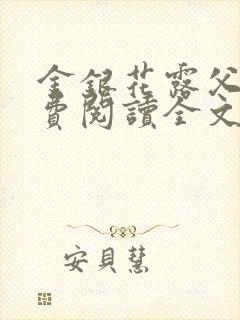 金銀花露父
費閱讀全文
安貝慧